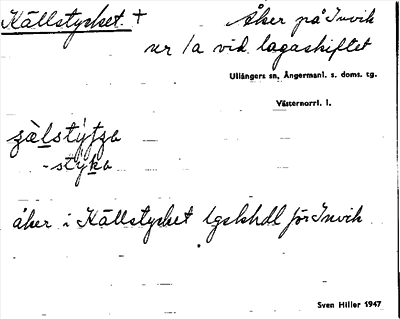 Källstycket. +
Åker på Invik
nr 1a vid lagaskiftet
Ullångers sn, Ångermanl. s. doms. tg.
Västernorrl. l.
-stýka
åker i Källstycket lgskhdl för Invik
Sven Hiller 1947